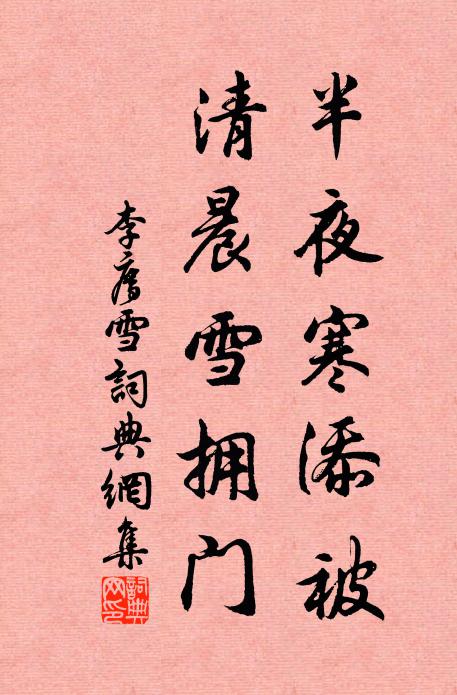 半夜寒添被
清晨雪拥门
李廌雪詞典網集
詞典网印